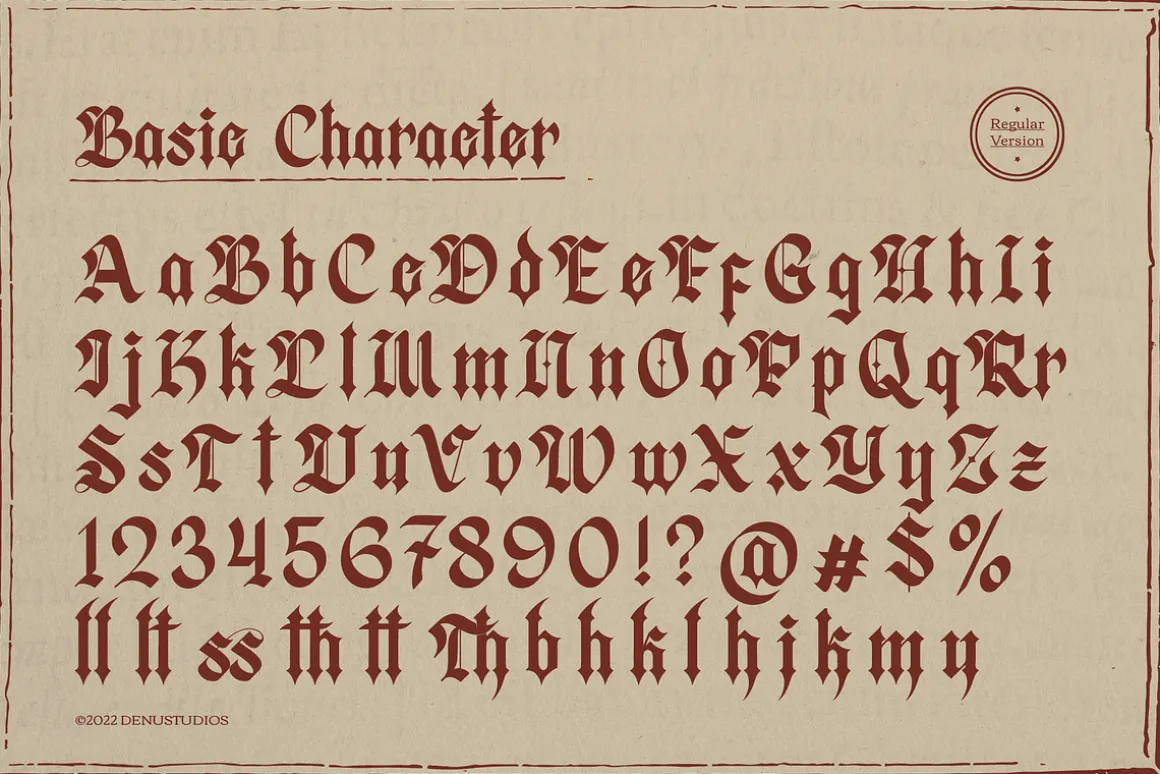 Basic Character
Regular
Version
AaBbCcDdEeFfGgHhIi
JjKkLlMmNnOoPpQqRr
SsTtUuVvWwXxYyZz
1234567890!?@#$%
ll lt ss th tt Th b h k l h j k m y
©2022 DENUSTUDIOS